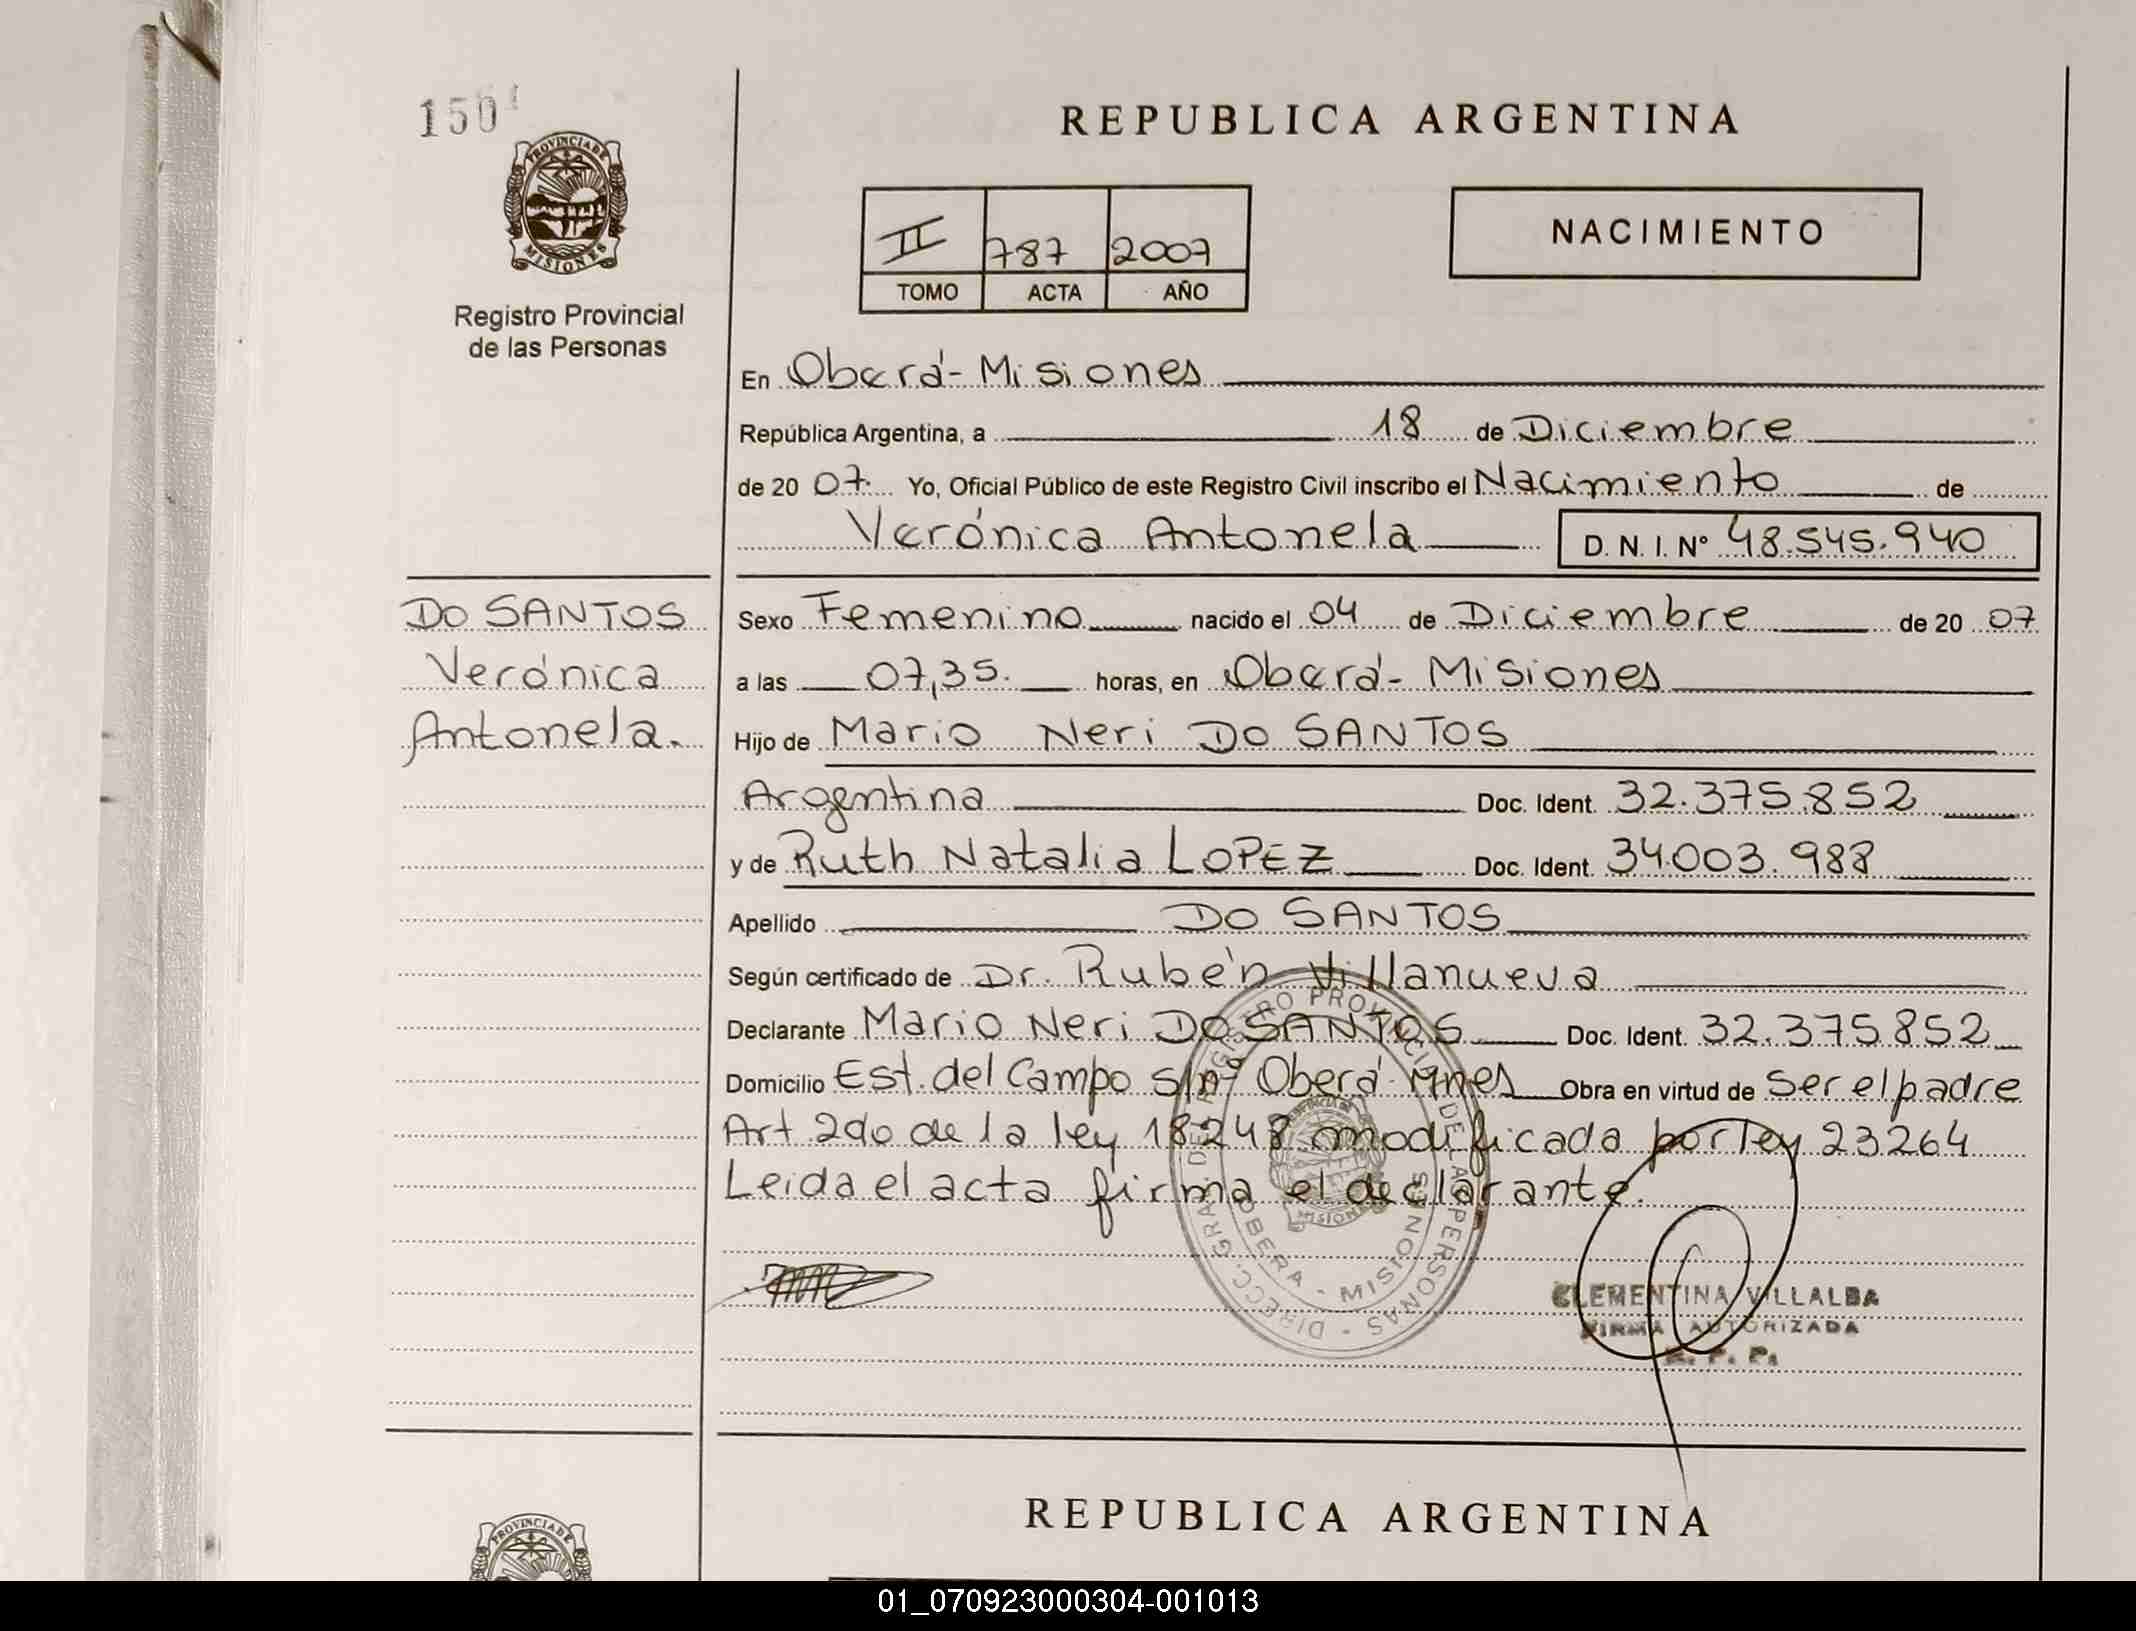 1501
REPUBLICA ARGENTINA
PROVINCIA DE
MISIONES
Registro Provincial
de las Personas
II 787 2007
TOMO ACTA AÑO
NACIMIENTO
En Oberá - Misiones
República Argentina, a 18 de Diciembre
de 20 07. Yo, Oficial Público de este Registro Civil inscribo el Nacimiento de
Verónica Antonela D. N. I. Nº 48.545.940
DO SANTOS
Verónica
Antonela.
Sexo Femenino nacido el 04 de Diciembre de 20 07
a las 07,35. horas, en Oberá - Misiones
Hijo de Mario Neri DO SANTOS
Argentina Doc. Ident. 32.375.852
y de Ruth Natalia LOPEZ Doc. Ident. 34.003.988
Apellido DO SANTOS
Según certificado de Dr. Rubén Villanueva
Declarante Mario Neri DO SANTOS Doc. Ident. 32.375.852
Domicilio Est. del Campo s/nº Oberá - Mnes Obra en virtud de ser el padre
Art 2do de la ley 18248 modificada por ley 23264
Leida el acta firma el declarante.
DIRECC. GRAL. DEL REGISTRO PROVINCIAL DE LAS PERSONAS
OBERA - MISIONES
CLEMENTINA VILLALBA
FIRMA AUTORIZADA
R. P. P.
REPUBLICA ARGENTINA
PROVINCIA DE
01_070923000304-001013